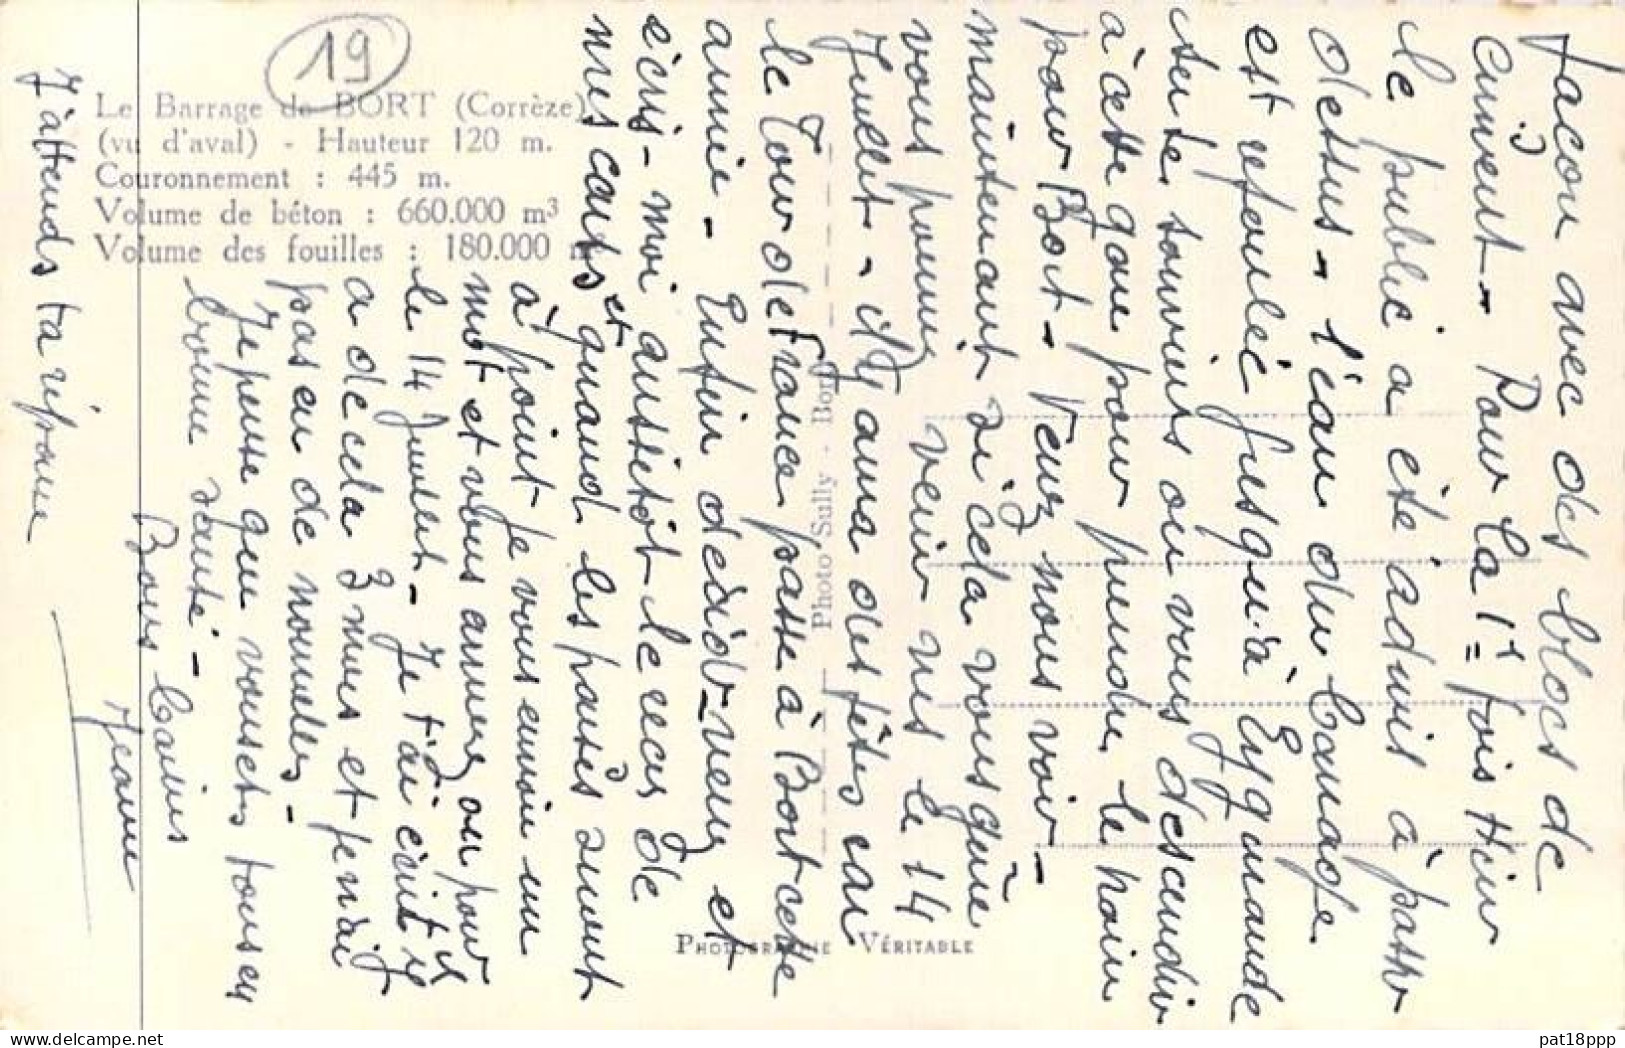 19
Le Barrage de BORT (Corrèze)
(vu d'aval) - Hauteur 120 m.
Couronnement : 445 m.
Volume de béton : 660.000 m3
Volume des fouilles : 180.000 m
Photo Sully - Bort
PHOTOGRAPHIE VÉRITABLE
façon avec des blocs de
Ciment - Pour la 1e fois hier
le public a été admis à passer
dessus - l'eau du barrage
est refoulée jusqu'à Eygurande
tu te souviens ou vous descendiez
à cette gare pour prendre le train
pour Bort - Venez nous voir -
maintenant si cela vous gêne
vous pouvez venir vers le 14
Juillet - il y aura des fêtes car
le Tour de France passe à Bort cette
année - Enfin décidez-vous et
écris-moi aussitôt le reçu de
mes cartes et quand les pansés seront
à point je vous envoie un
mot et vous annoncez ou pour
le 14 Juillet - Je t'ai écrit il y
a de cela 3 mois et je n'ai
pas eu de nouvelles -
Je pense que vous êtes tous en
bonne santé -
Bons baisers
Jeanne
J'attends ta réponse
pat18ppp